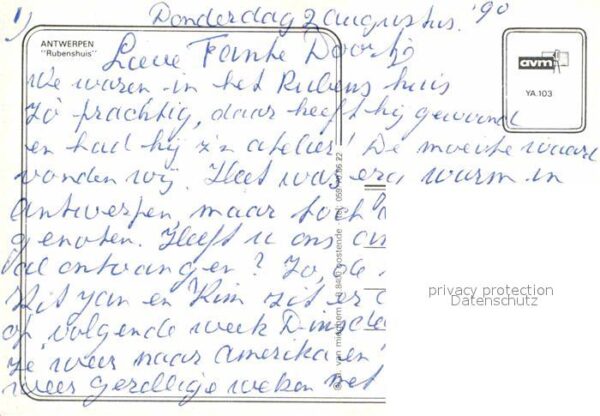 1) Donderdag 2 augustus. '90
ANTWERPEN
"Rubenshuis"
Lieve Tante Doortj
avm
YA.103
We waren in het Rubens huis
Zo prachtig, daar heeft hij gewoond
en had hij z'n atelier! De moeite waard
vonden wij. Het was erg warm in
Antwerpen, maar toch
genoten. Heeft u ons
al ontvangen? Zo, de
van Yan en Kim zit er
op volgende week Dinsda
ze weer naar Amerika en
weer gezellige weken met
oostende
privacy protection
Datenschutz